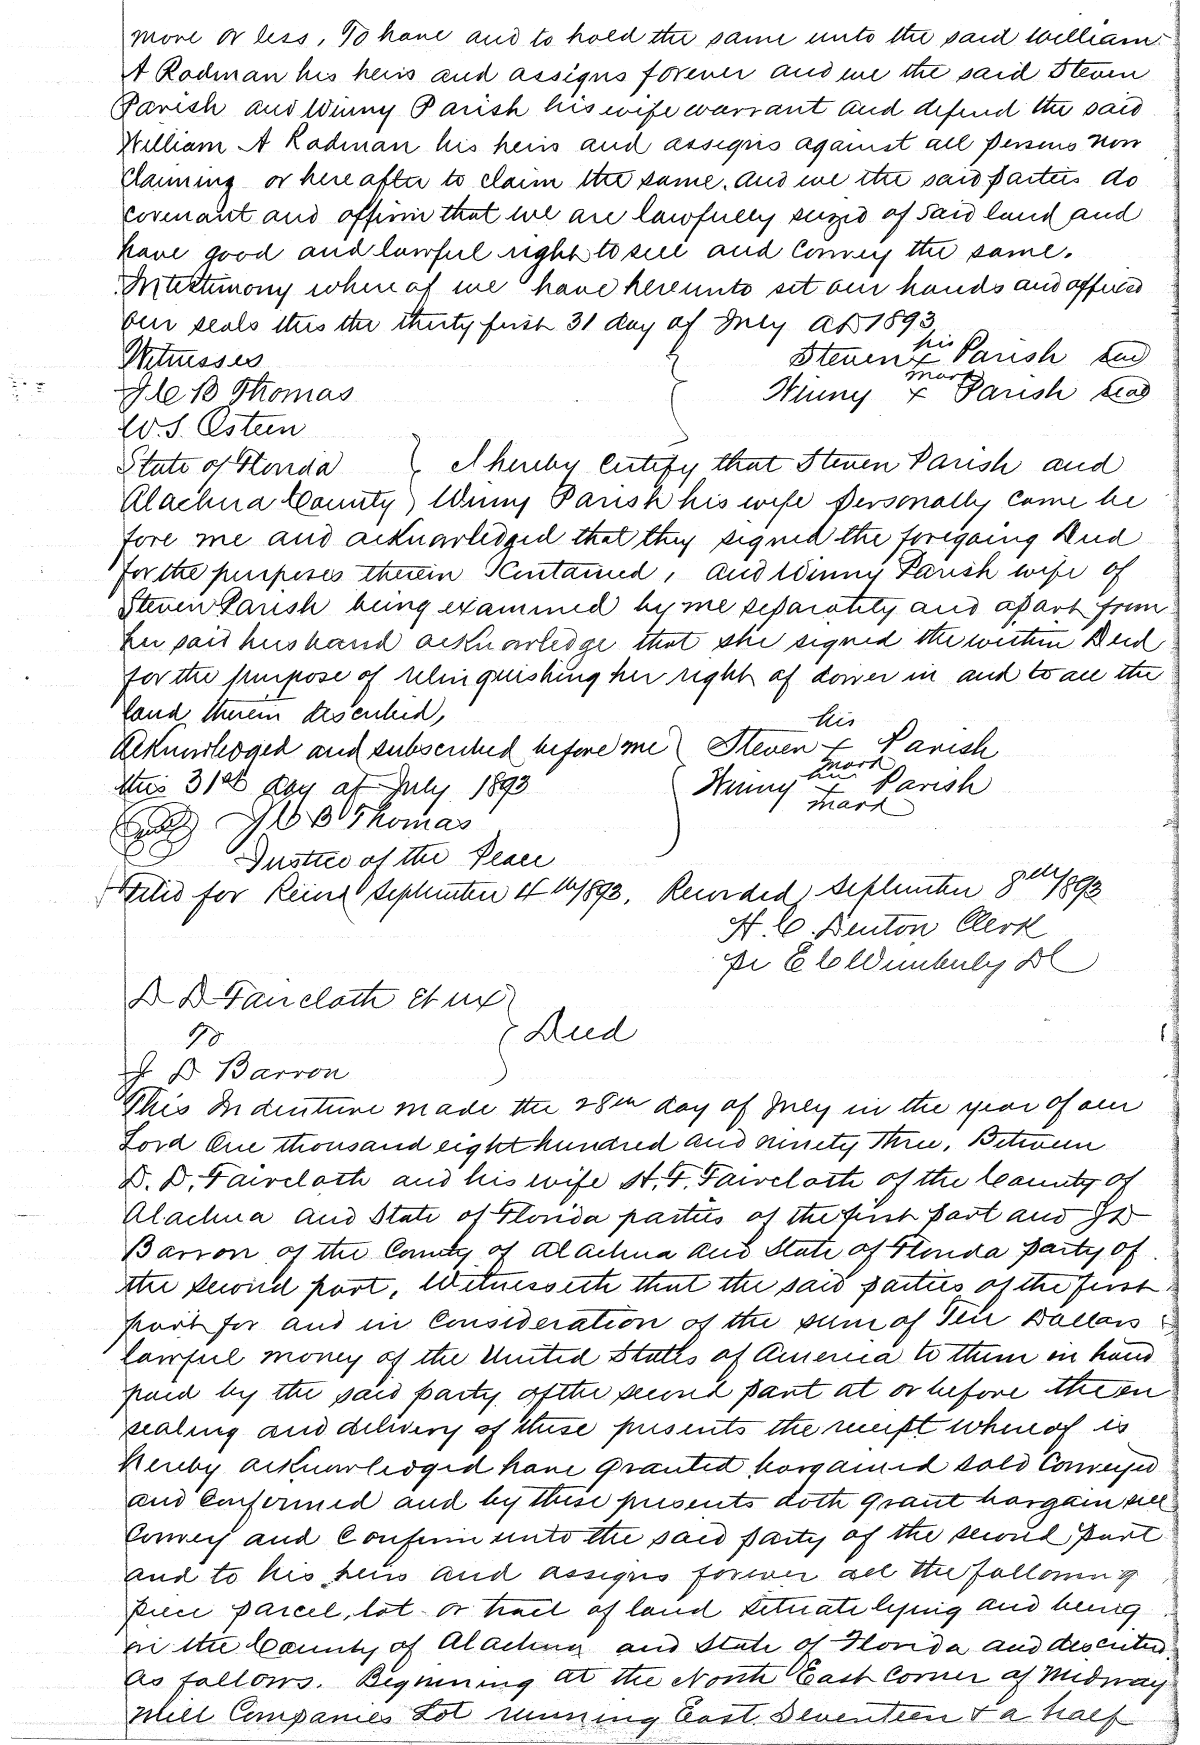 more or less, To have and to hold the same unto the said William
A Rodman his heirs and assigns forever and we the said Steven
Parish and Winny Parish his wife warrant and defend the said
William A Rodman his heirs and assigns against all persons now
claiming or hereafter to claim the same. and we the said parties do
covenant and affirm that we are lawfully seized of said land and
have good and lawful right to sell and convey the same.
In testimony whereof we have hereunto set our hands and affixed
our seals this the thirty first 31 day of July AD 1893
Witnesses
his
Steven x Parish Seal
J C B Thomas
mark
Winny x Parish Seal
W.S. Osteen
State of Florida } I hereby certify that Steven Parish and
Alachua County } Winny Parish his wife personally came be
fore me and acknowledged that they signed the foregoing Deed
for the purposes therein contained, and Winny Parish wife of
Steven Parish being examined by me separately and apart from
her said husband acknowledge that she signed the within Deed
for the purpose of relinquishing her right of dower in and to all the
land therein described,
his
Acknowledged and subscribed before me } Steven x Parish
mark
this 31st day of July 1893 } Winny her Parish
x mark
Seal J C B Thomas
Justice of the Peace
Filed for Record September 4th 1893. Recorded September 8th 1893
H. C. Denton Clerk
pr E C Wimberly DC
D D Faircloth et ux }
To } Deed
J D Barron
This Indenture made the 28th day of July in the year of our
Lord One thousand eight hundred and ninety three. Between
D. D. Faircloth and his wife H. F. Faircloth of the County of
Alachua and State of Florida parties of the first part and J D
Barron of the County of Alachua and State of Florida party of
the second part, Witnesseth that the said parties of the first
part for and in consideration of the sum of Ten Dollars
lawful money of the United States of America to them in hand
paid by the said party of the second part at or before the en
sealing and delivery of these presents the receipt whereof is
hereby acknowledged have granted bargained sold conveyed
and confirmed and by these presents doth grant bargain sell
convey and confirm unto the said party of the second part
and to his heirs and assigns forever all the following
piece parcel, lot or tract of land situate lying and being
in the County of Alachua and State of Florida and described
as follows. Beginning at the North East Corner of Midway
Mill Companies Lot running East Seventeen & a half